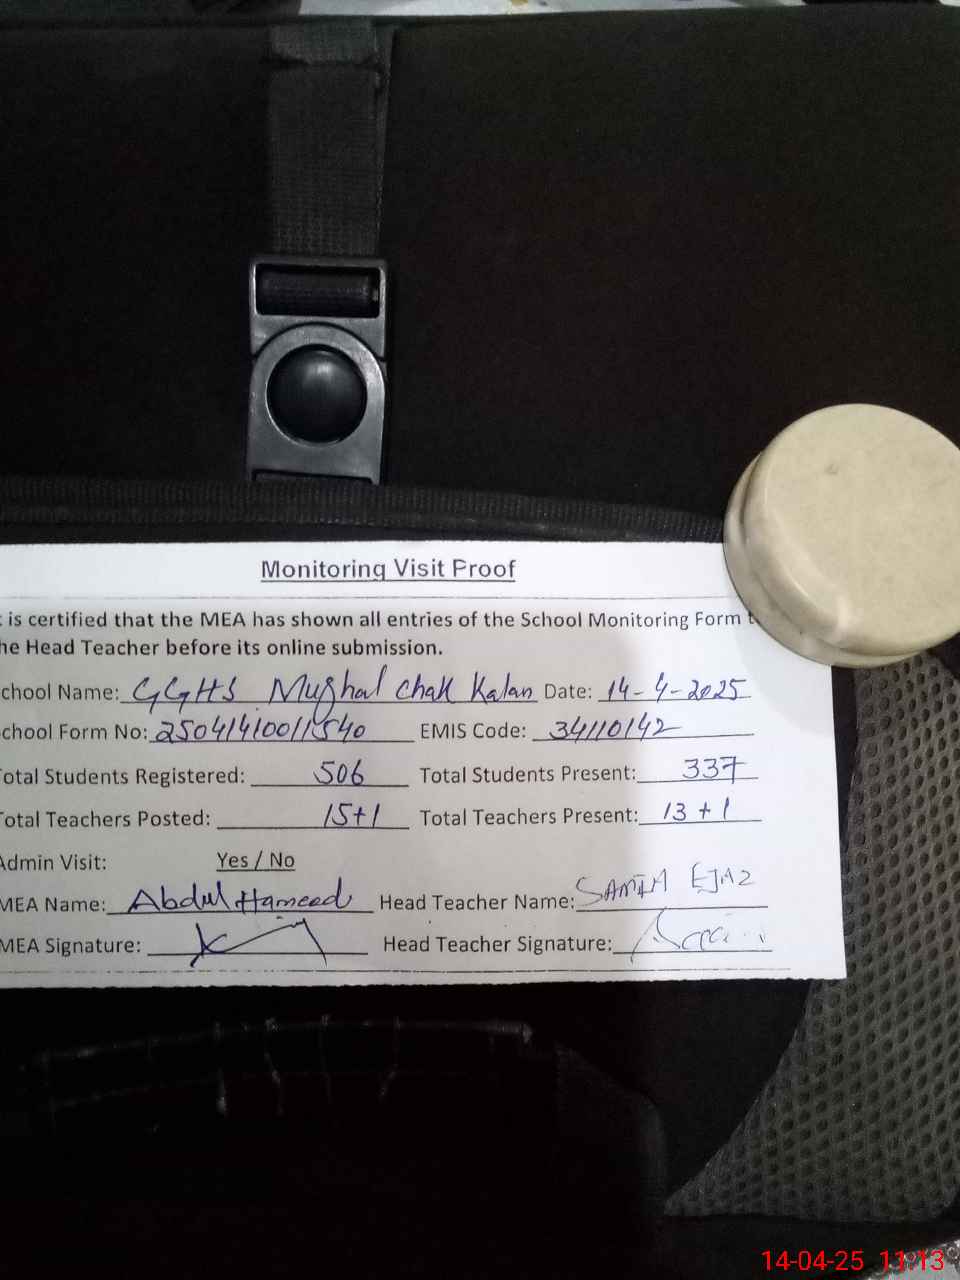 Monitoring Visit Proof
is certified that the MEA has shown all entries of the School Monitoring Form t
he Head Teacher before its online submission.
chool Name: GGHS Mughal Chak Kalan Date: 14-4-2025
chool Form No: 25041410011540 EMIS Code: 34110142
otal Students Registered: 506 Total Students Present: 337
otal Teachers Posted: 15+1 Total Teachers Present: 13+1
Admin Visit: Yes / No
MEA Name: Abdul Hameed Head Teacher Name: EJAZ
MEA Signature: Head Teacher Signature:
14-04-25 11:13